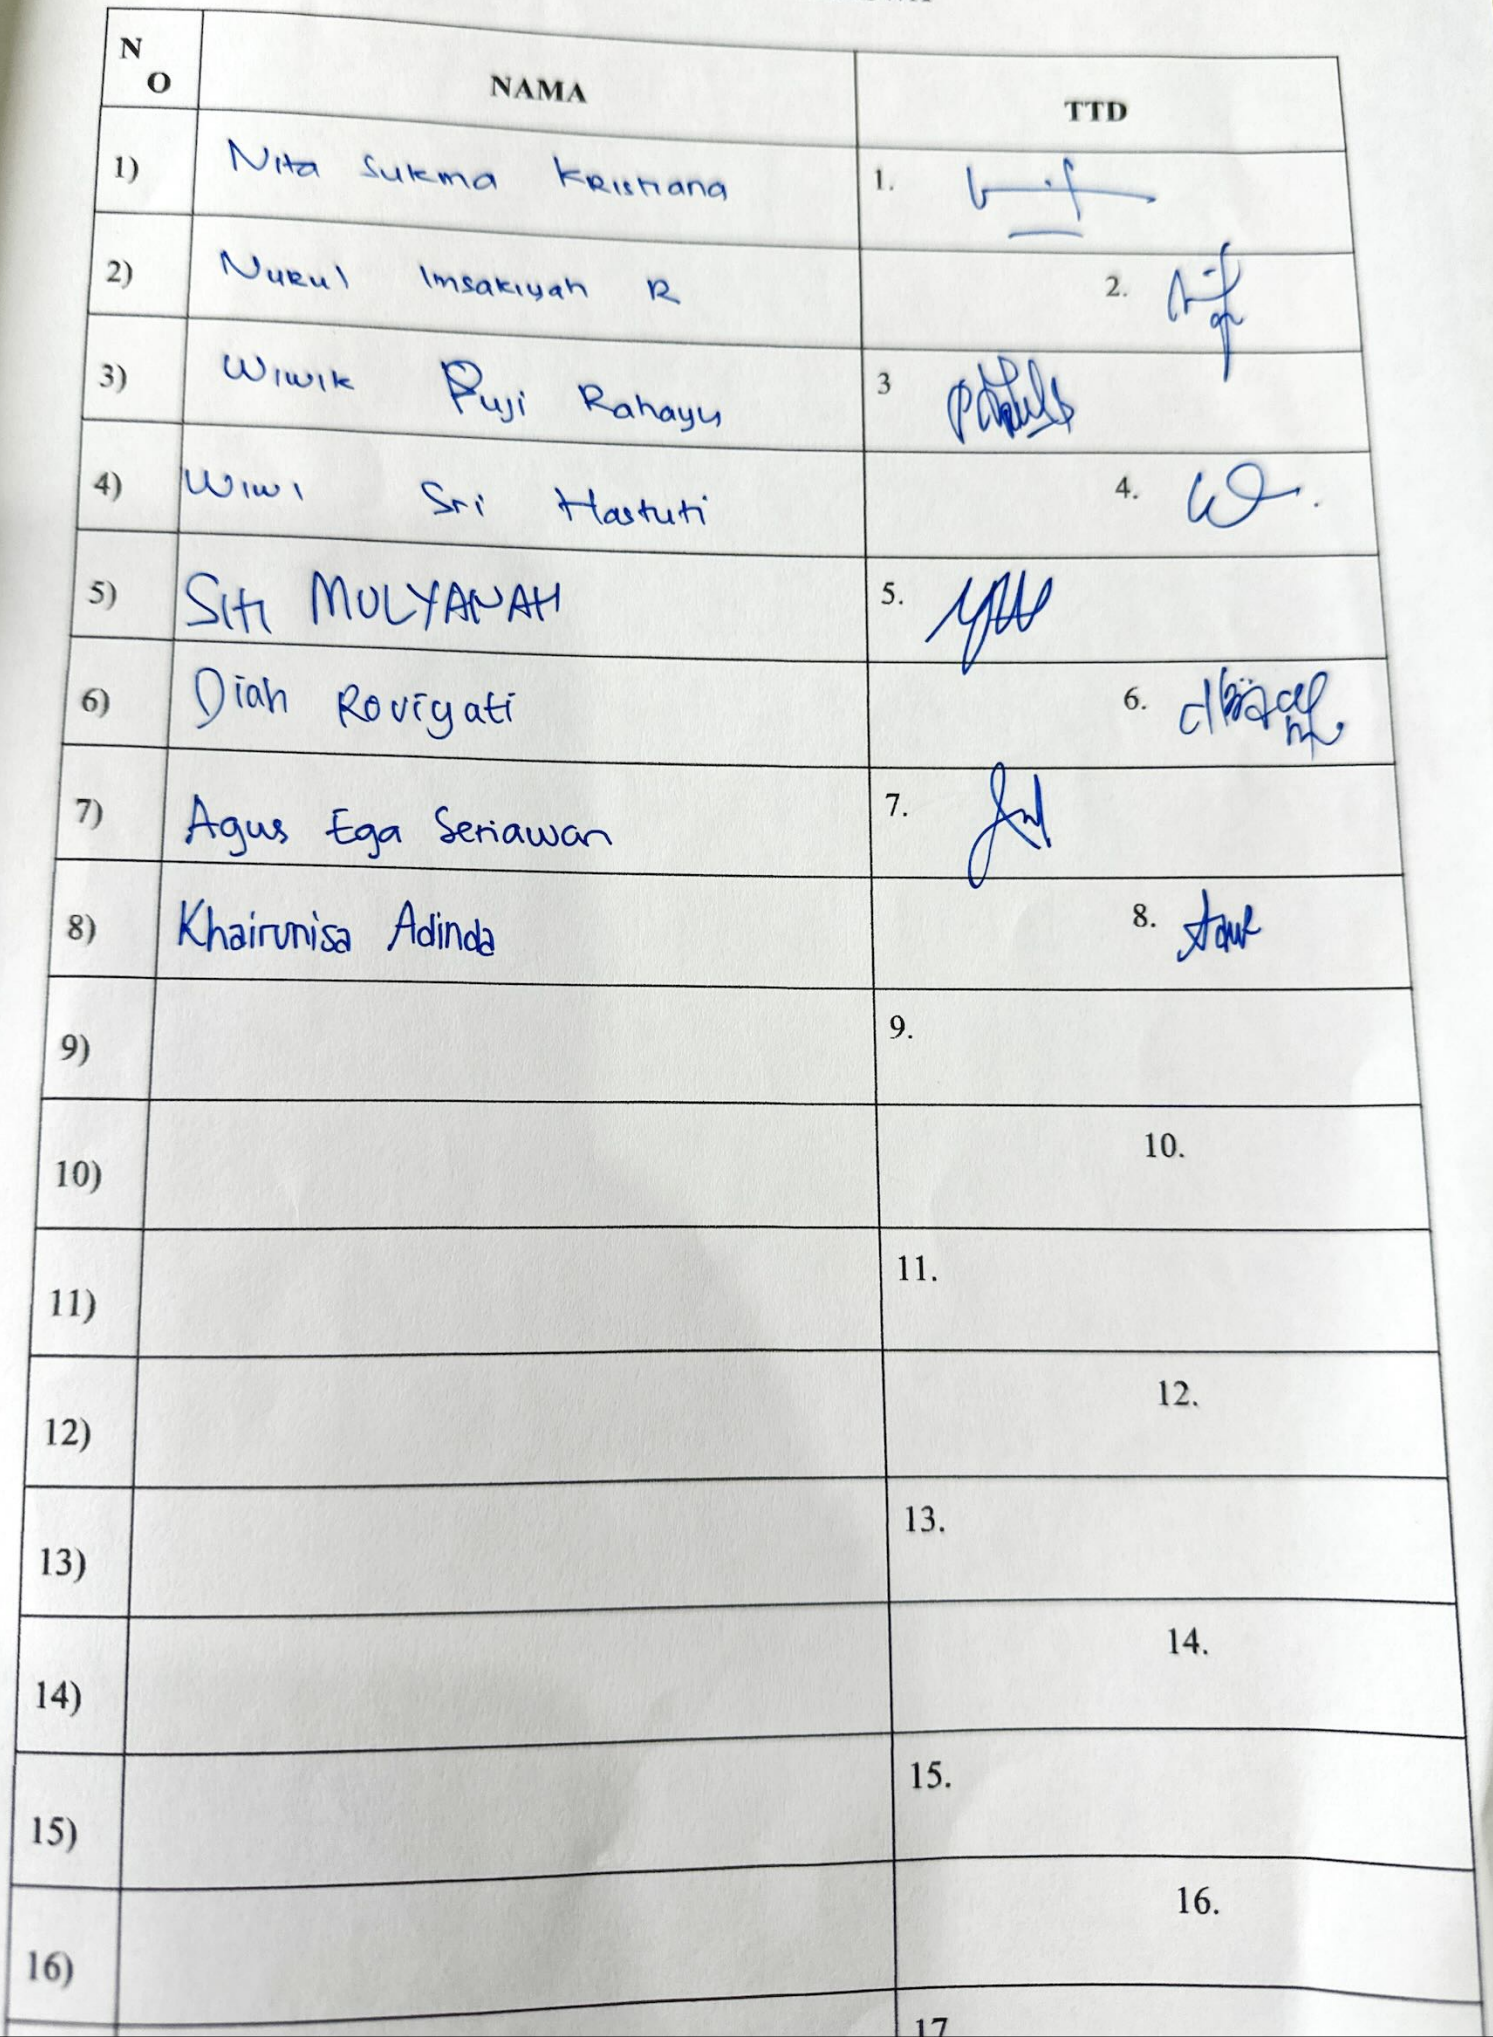 NO NAMA TTD
1) Nita Sukma Kristiana 1.
2) Nurul Imsakiyah R 2.
3) Wiwik Puji Rahayu 3
4) Wiwi Sri Hastuti 4.
5) Siti MULYANAH 5.
6) Diah Roviyati 6.
7) Agus Ega Seriawan 7.
8) Khairunisa Adinda 8.
9) 9.
10) 10.
11) 11.
12) 12.
13) 13.
14) 14.
15) 15.
16) 16.
17